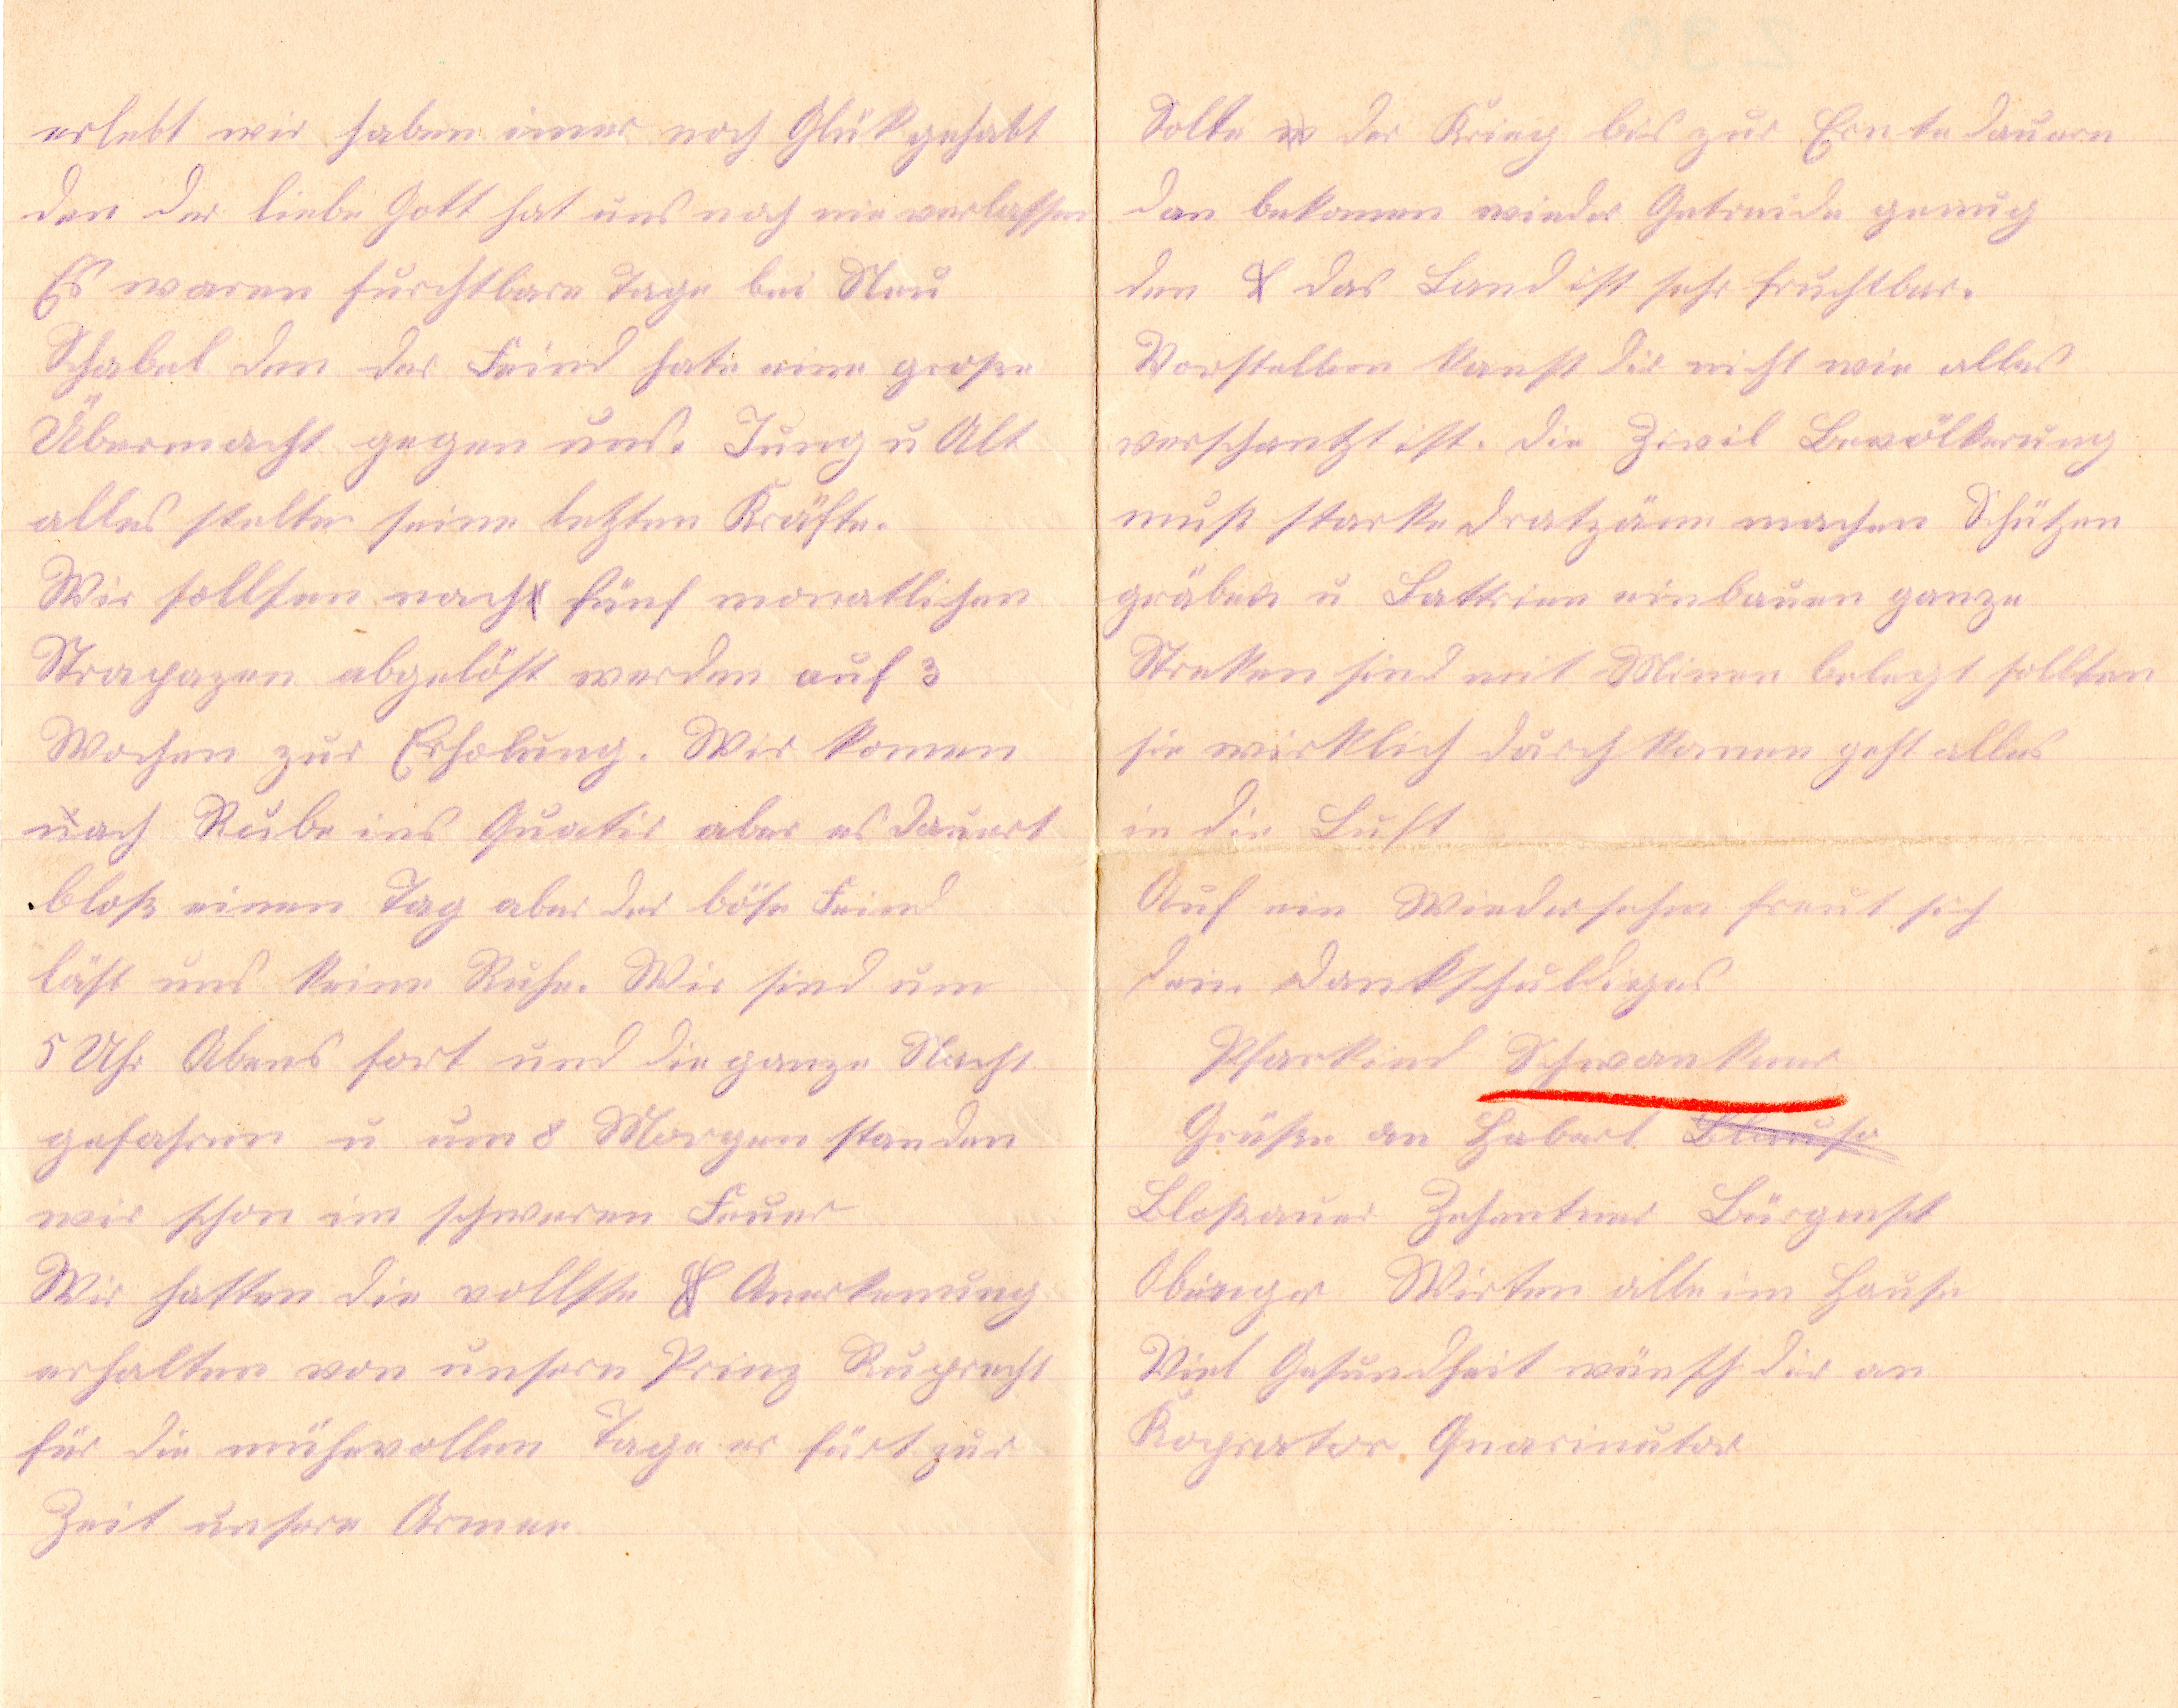 erlebt wir haben imer noch Glük gehabt
den der liebe Gott hat uns noch nie verlassen
Es waren furchtbare Tage bei Neu
Schabel den der Feind hate eine große
Übermacht gegen uns. Jung u Alt
alles stelte seine letzten Kräfte.
Wir sollten nach fünf monatlichen
Strapazen abgelöst werden auf 3
Wochen zur Erholung. Wir komen
nach Rube ins Quatir aber es dauert
bloß einen Tag aber der böse Feind
läst uns keine Ruhe. Wir sind um
5 Uhr Abens fort und die ganze Nacht
gefahren u um 8 Morgen standen
wir schon im schweren Feuer
Wir hatten die vollste Anerkenung
erhalten von unsern Prinz Ruprecht
für die mühevollen Tage er fürt zur
Zeit unsere Armee
Solte der Krieg bis zur Ernte dauern
dan bekomen wieder Getreide genug
den das Land ist sehr fruchtbar.
Vorstellen kanst dir nicht wie alles
verschantzt ist. die Zivil Bevölkerung
muß starke Dratzäne machen Schützen
gräben u Lattrine einbauen ganze
Streken sind mit Minen belegt sollten
sie wirklich durch komen geht alles
in die Luft
Auf ein Wiedersehn freut sich
dein Dankschuldiges
Pfarkind Schwankner
Grüße an Haberl
Bloßauer Zehentner Bürgenst
Obinger Wirten alle im Hause
Viel Gesundheit wünsch dir an
Koprator